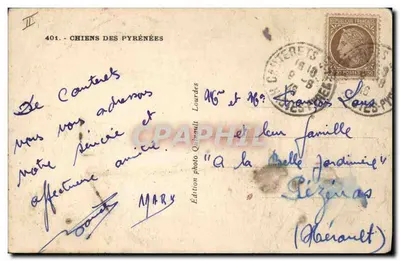 II
401. - CHIENS DES PYRÉNÉES
De Cauterets
nous vous adressons
notre sincère et
affectueuse amitié.
MARX
Edition photo Lourdes
CAUTERETS
Mr et Mme Louis
et leur famille
"A la Belle Jardinière"
Pézenas
(Hérault)